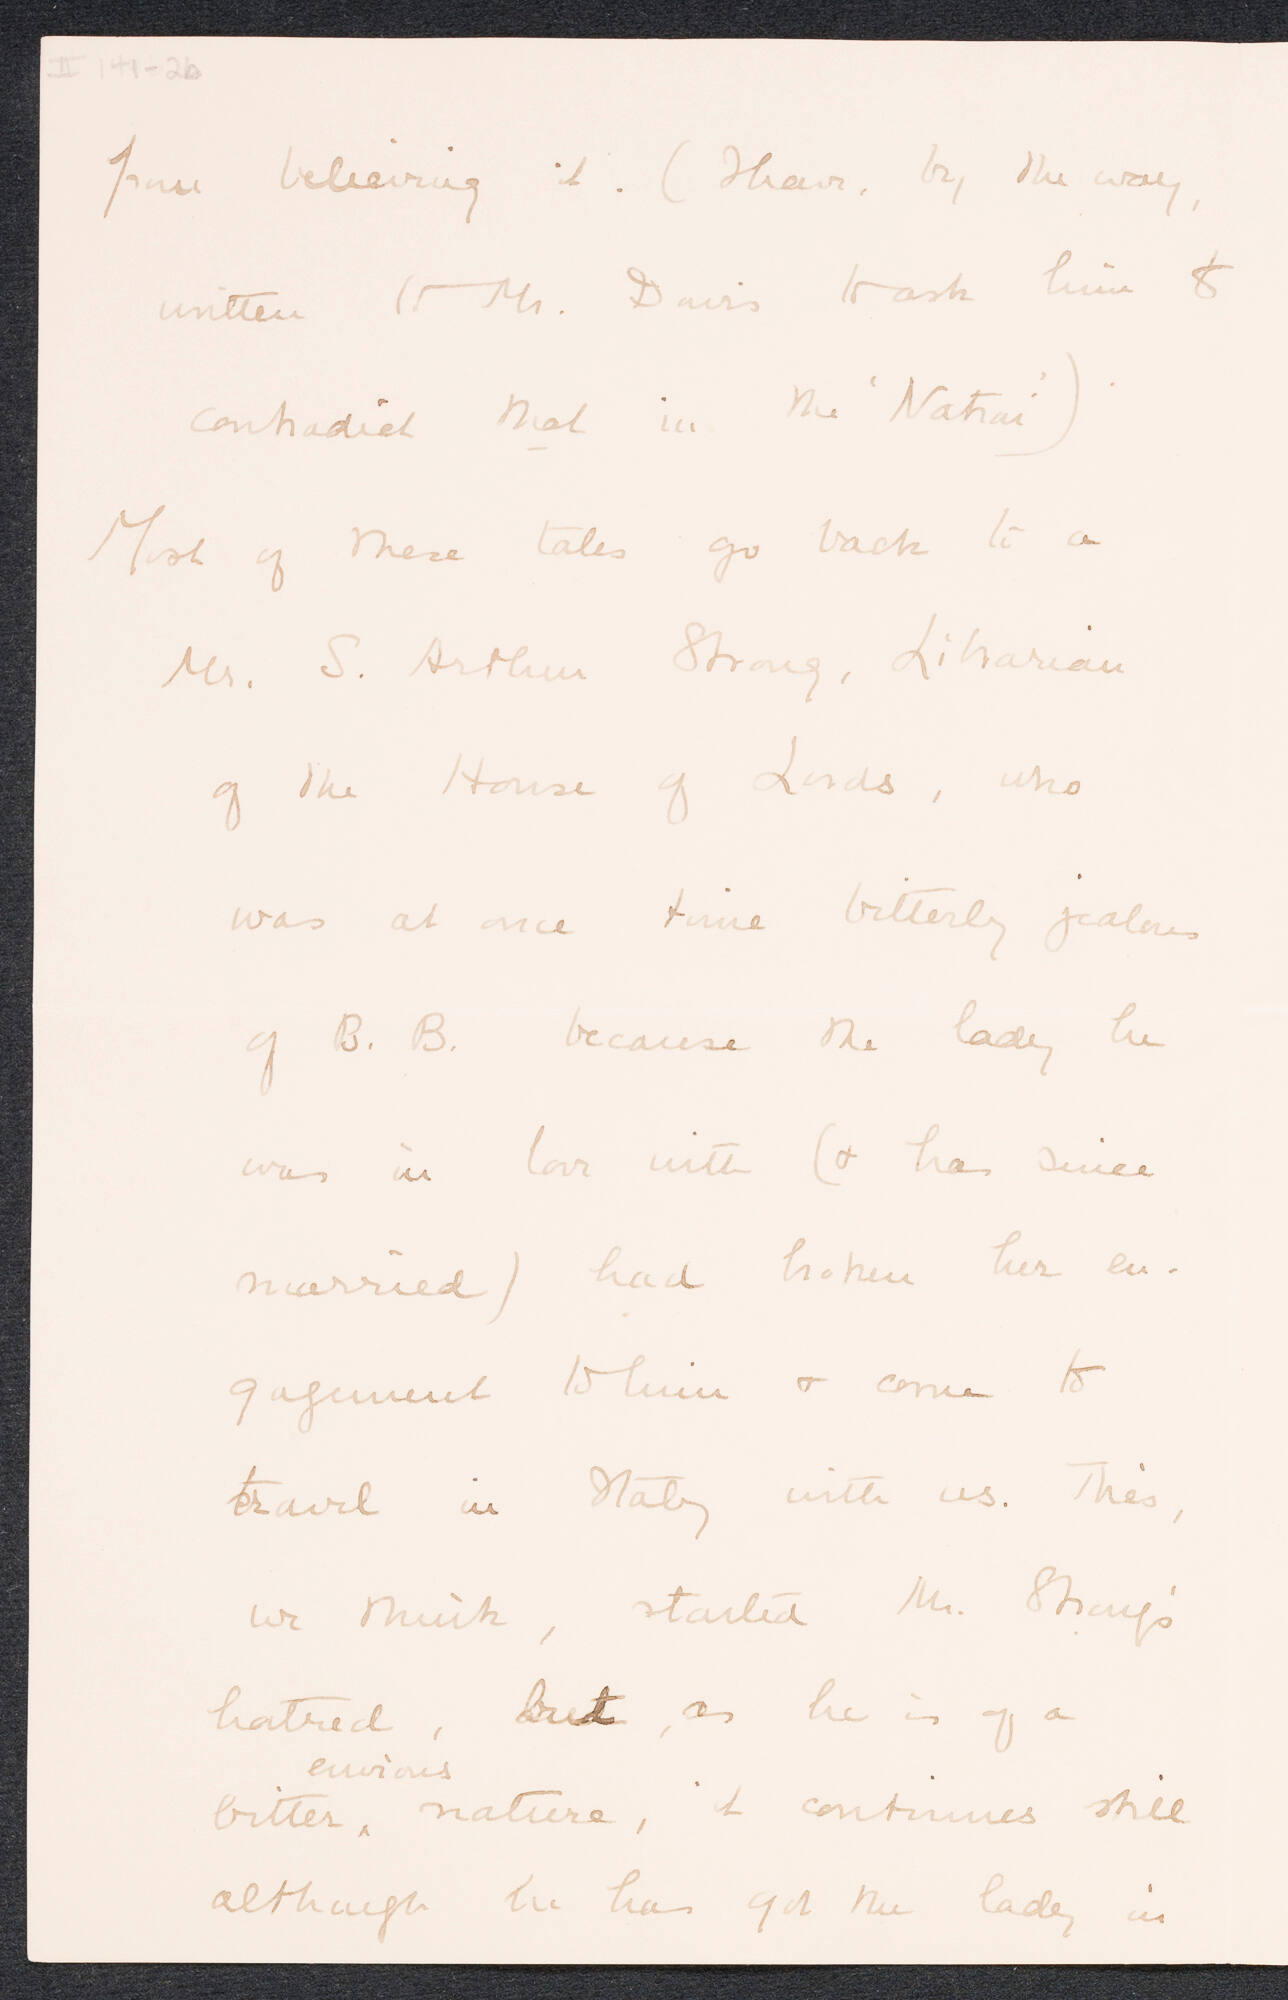 II 141-2b
from believing it. (I have, by the way,
written to Mr. Davis to ask him to
contradict that in the 'Nation')
Most of these tales go back to a
Mr. S. Arthur Strong, Librarian
of the House of Lords, who
was at once time bitterly jealous
of B. B. because the lady he
was in love with (& has since
married) had broken her en-
gagement to him & come to
travel in Italy with us. This,
we think, started Mr. Strong's
hatred, but, as he is of a
envious
bitter, ^ nature, it continues still
although he has got the lady in